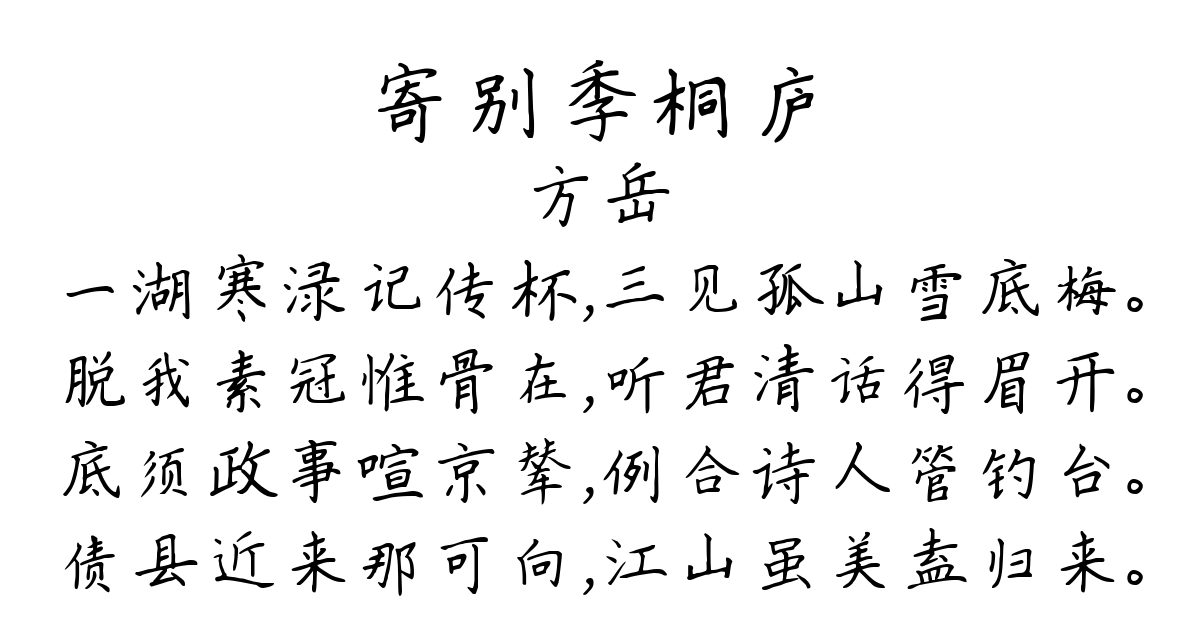 寄别季桐庐
方岳
一湖寒渌记传杯,三见孤山雪底梅。
脱我素冠惟骨在,听君清话得眉开。
底须政事喧京辇,例合诗人管钓台。
债县近来那可向,江山虽美盍归来。